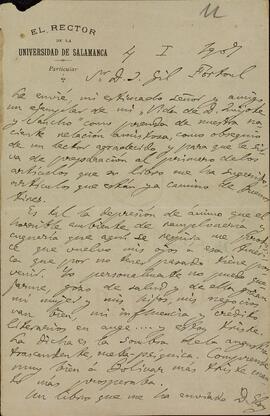 11
EL RECTOR
DE LA
UNIVERSIDAD DE SALAMANCA
Particular
4 I 1907
Sr. D. J. Gil Fortoul
Le envié, mi estimado señor y amigo
un ejemplar de mi Vida de D. Quijote
y Sancho como prenda de nuestra na
ciente relación amistosa, como obsequio
de un lector agradecido y para que le sir
va de preparación al primero de los
artículos que su libro me ha sugerido
artículos que están ya camino de Buenos
Aires.
Es tal la depresión de ánimo que el
horrible ambiente de
que aquí se respira me produ
ce que vuelvo mis ojos a esa América
ca que por no tener pasado tiene por
venir. Yo personalmente no puedo que
jarme, gozo de salud y de
mi mujer y mis hijos, mis negocios
van bien, mi influencia y crédito
literarios en auge ... y estoy triste.
La dicha es la sombra de la angustia
Comprendo
muy bien a Bolívar más triste cuan
to más prosperaba.
Un libro que me ha enviado D.